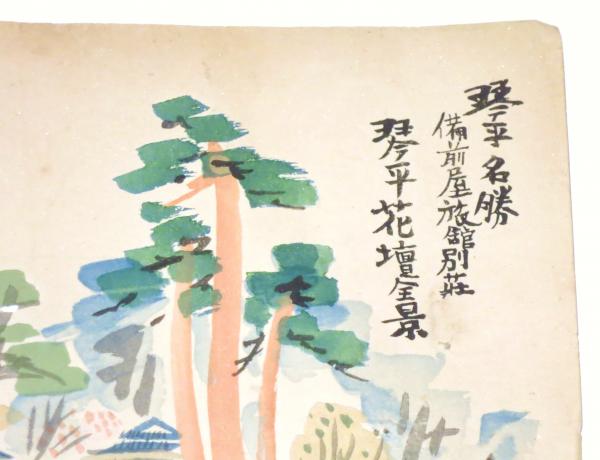 琴平名勝
備前屋旅舘別莊
琴平花壇全景